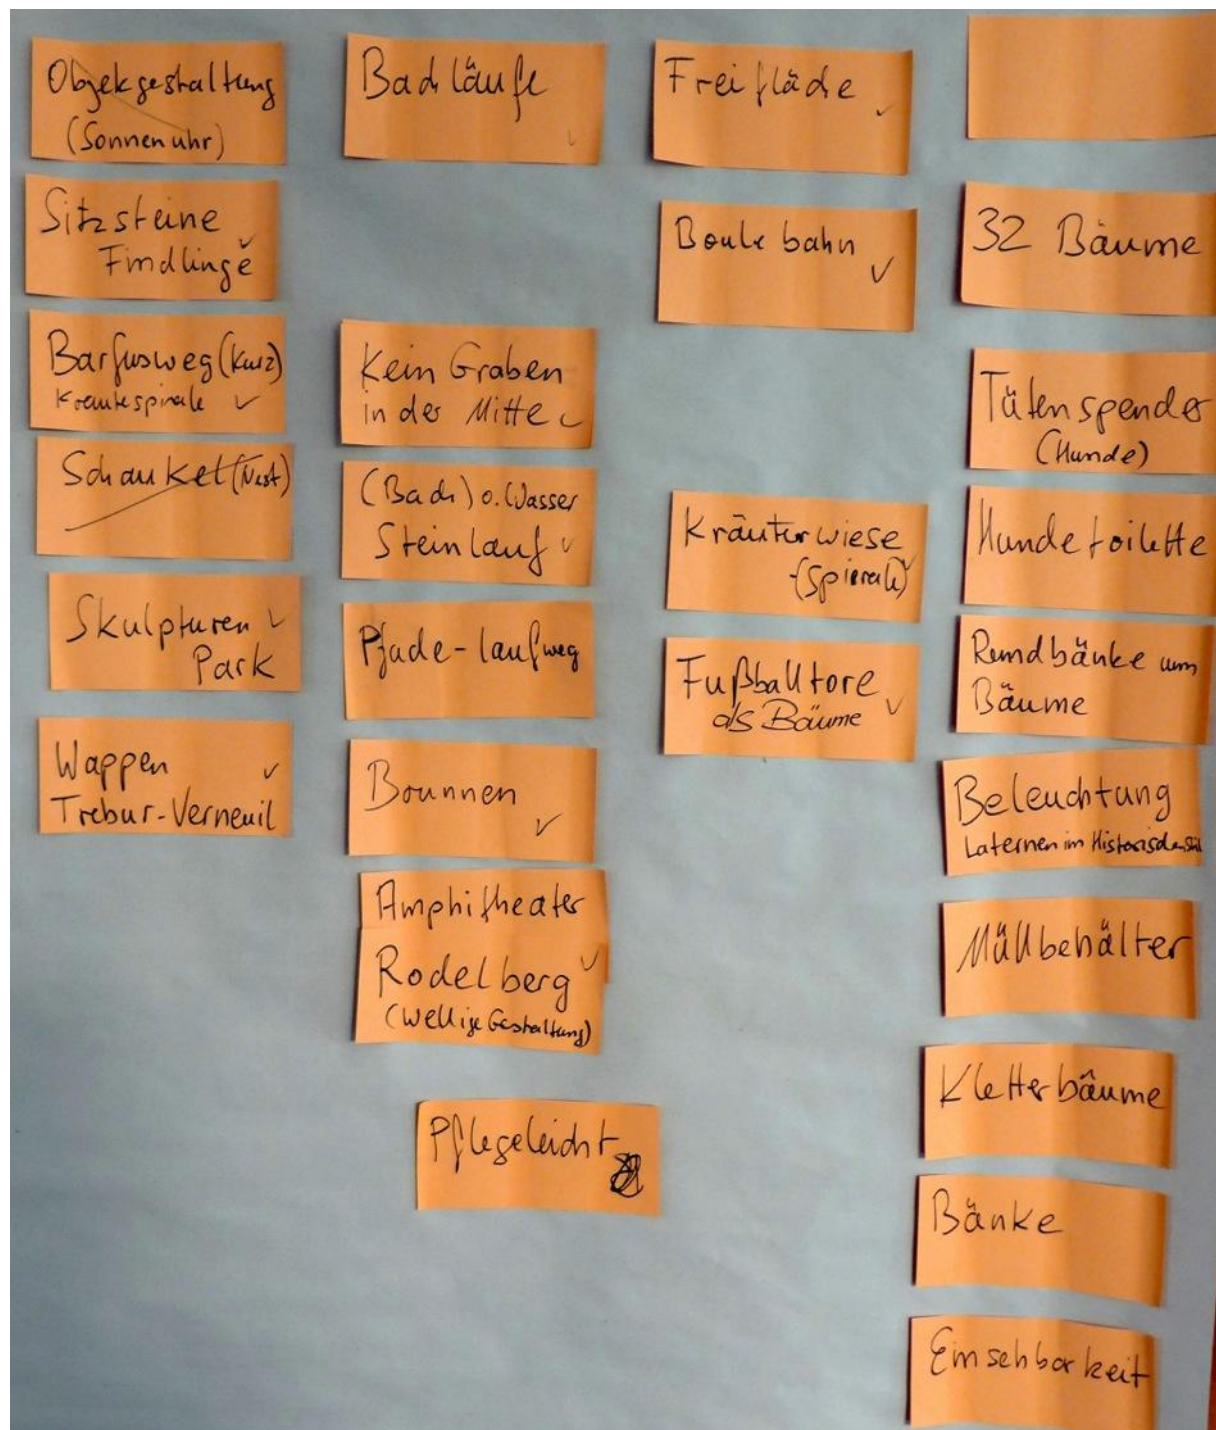 Objekgestaltung
(Sonnenuhr)
Sitzsteine
Findlinge
Barfusweg (kurz)
Kräutespirale
Schaukel (Nest)
Skulpturen
Park
Wappen
Trebur-Verneuil
Bachläufe
Kein Graben
in der Mitte
(Bach) o. Wasser
Steinlauf
Pfade-laufweg
Brunnen
Amphitheater
Rodelberg
(Wellige Gestaltung)
Pflegeleicht
Freifläche
Boule bahn
Kräuterwiese
(Spierale)
Fußballtore
als Bäume
32 Bäume
Tütenspender
(Hunde)
Hundetoilette
Rundbänke um
Bäume
Beleuchtung
Laternen im Historischen Stil
Müllbehälter
Kletterbäume
Bänke
Einsehbarkeit